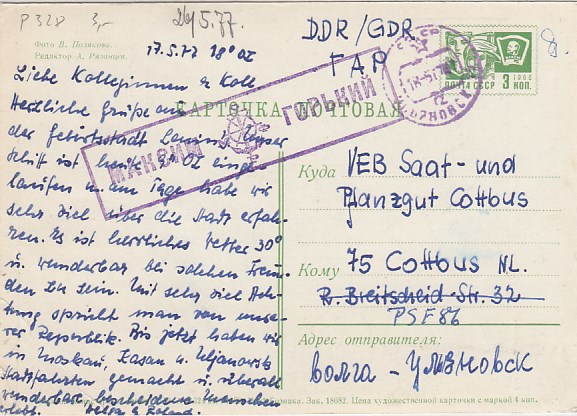 P 328 3,-
24.5.77.
Фото В. Полякова.
Редактор А. Рязанцев.
17.5.77 18° OZ
Liebe Kolleginnen u. Koll.
Herzliche Grüße aus
der Geburtsstadt Lenins. Unser
Schiff ist heute OZ einge-
laufen u. am Tage habe wir
sehr viel über die Stadt erfah-
ren. Es ist herrliches Wetter 30°
u. wunderbar bei solchen Freun-
den zu sein. Mit sehr viel Ach-
tung spricht man von unse-
rer Republik. Bis jetzt haben wir
in Moskau, Kasan u. Uljanowsk
Stadtfahrten gemacht u. überall
wunderbare, bescheidene Menschen
erlebt. Helga & Roland.
МАКСИМ ГОРЬКИЙ
КАРТОЧКА ПОЧТОВАЯ
DDR/GDR
ГДР
СССР
ПОЧТА СССР 3 КОП.
1966
8.
Куда VEB Saat- und
Pflanzgut Cottbus
Кому 75 Cottbus NL.
R. Breitscheid-Str. 32
PSF 86
Адрес отправителя:
волга - Ульяновск
Зак. 18682. Цена художественной карточки с маркой 4 коп.